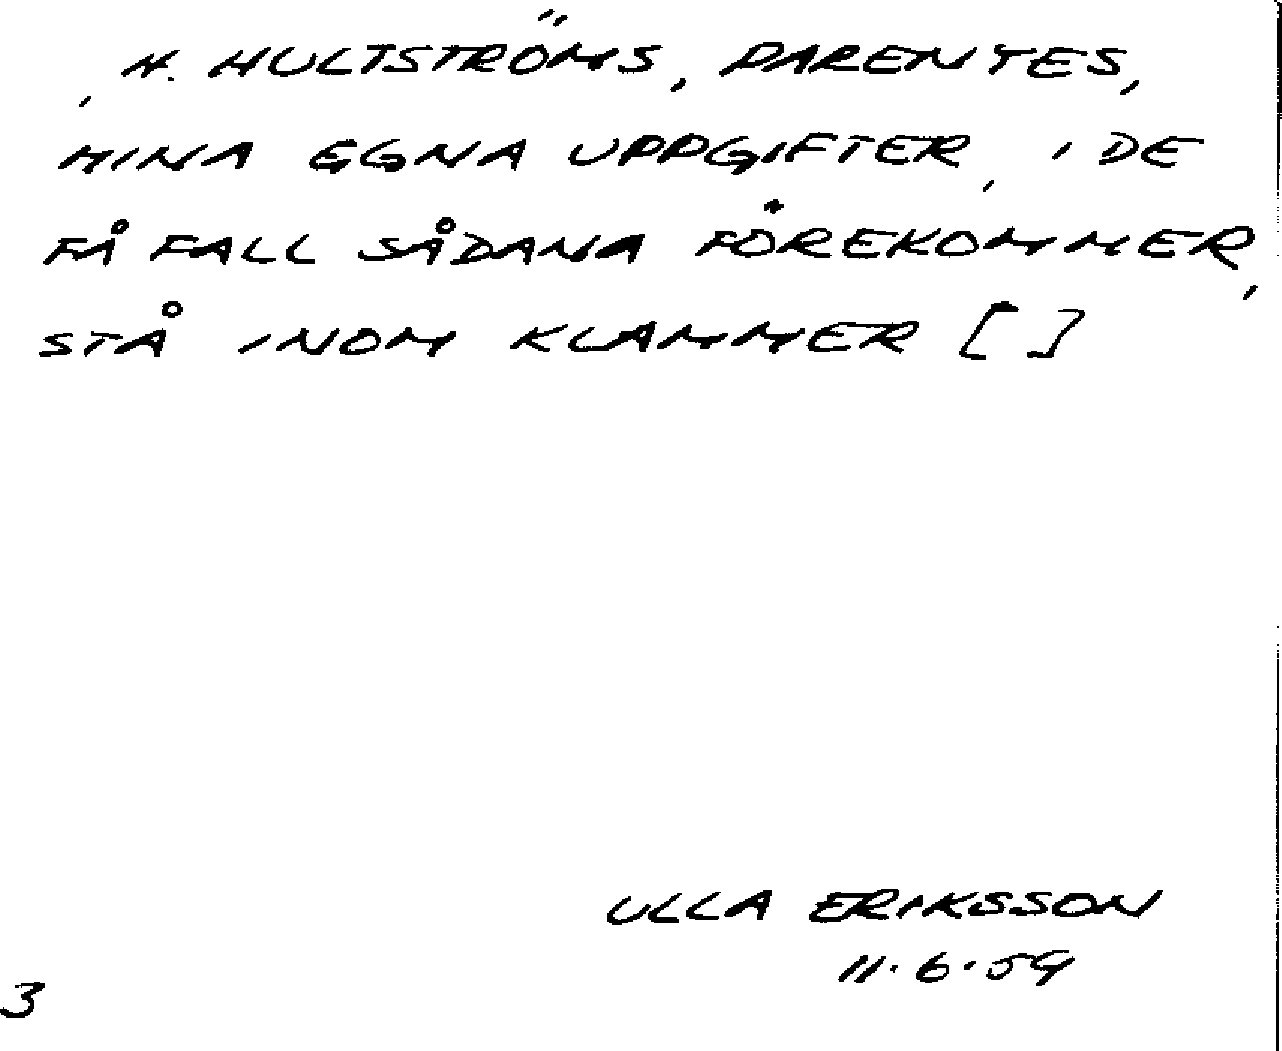 , H. HULTSTRÖMS, PARENTES,
MINA EGNA UPPGIFTER, I DE
FÅ FALL SÅDANA FÖREKOMMER,
STÅ INOM KLAMMER [ ]
ULLA ERIKSSON
11.6.59
3